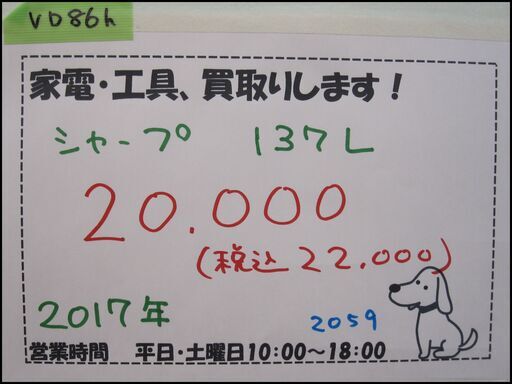 VD86h
家電・工具、買取りします!
シャープ 137L
20.000
(税込 22.000)
2017年
2059
営業時間 平日・土曜日10:00～18:00